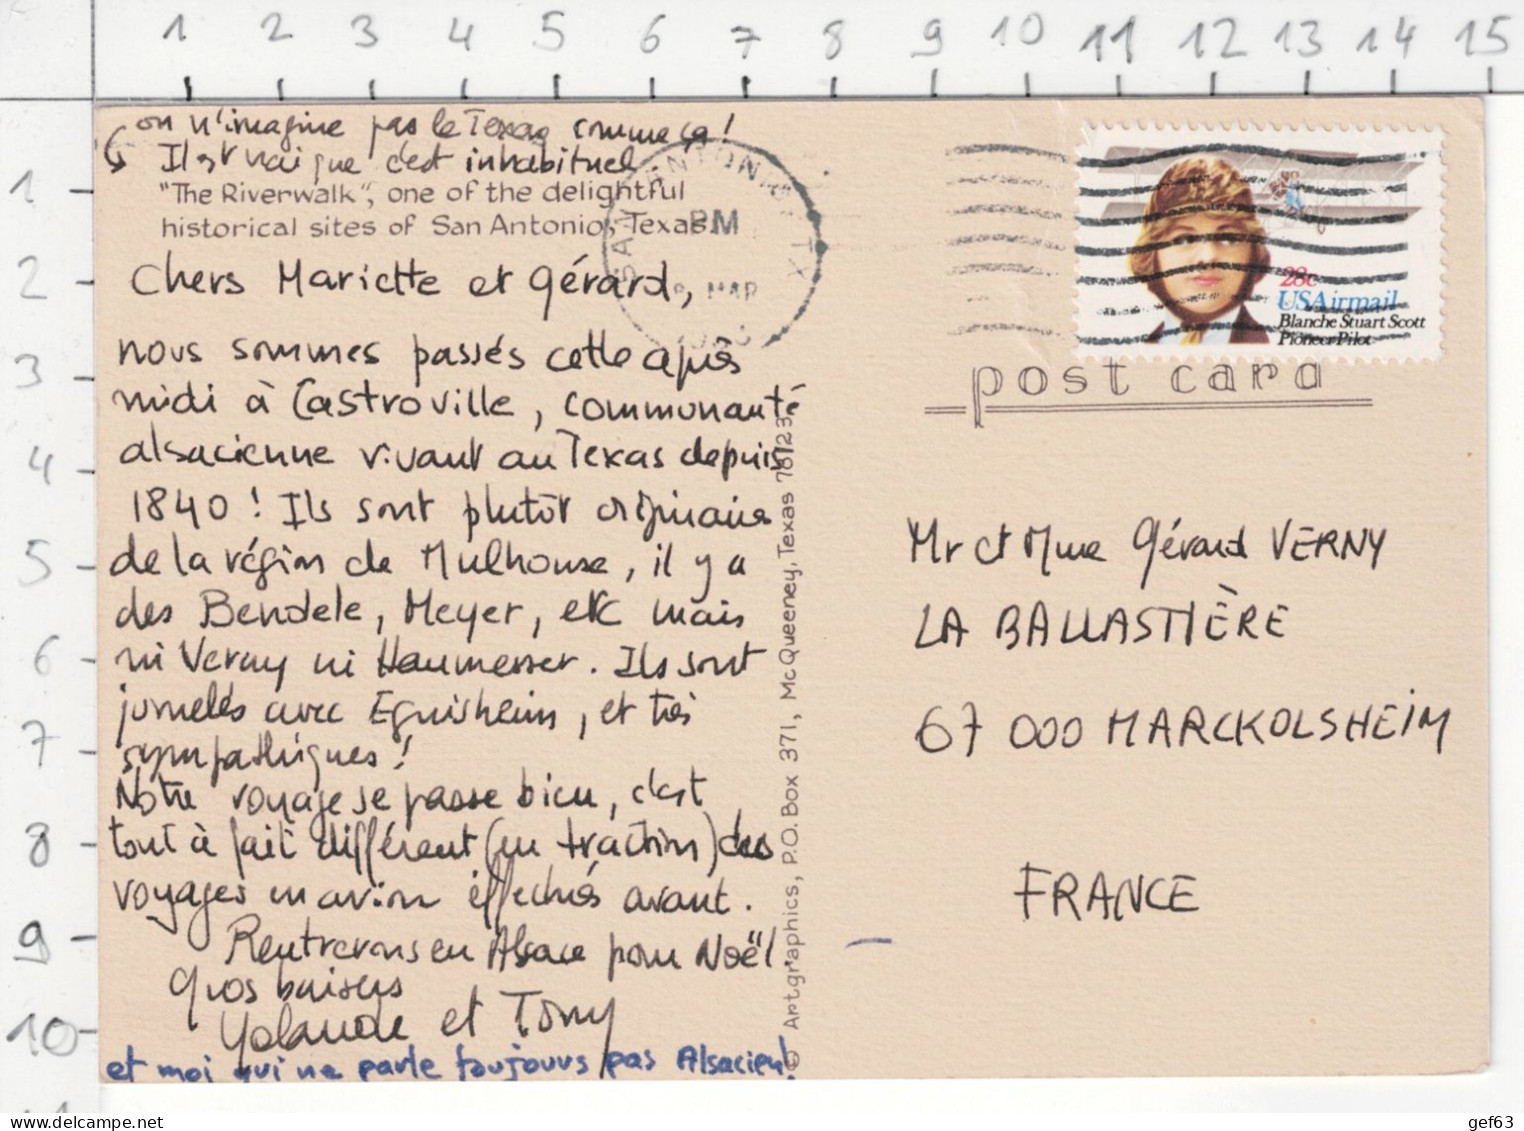 1 2 3 4 5 6 7 8 9 10 11 12 13 14 15
1
2
3
4
5
6
7
8
9
10
on n'imagine pas le Texas comme ça !
Il est vrai que c'est inhabituel
"The Riverwalk", one of the delightful
historical sites of San Antonio, Texas.
SAN ANTONIO TX
PM
MAR
28c
USAirmail
Blanche Stuart Scott
Pioneer Pilot
post card
Chers Mariette et Gérard,
nous sommes passés cette après
midi à Castroville, communauté
alsacienne vivant au Texas depuis
1840 ! Ils sont plutôt originaires
de la région de Mulhouse, il y a
des Bendele, Meyer, etc mais
ni Verny ni Haumesser. Ils sont
jumelés avec Eguisheim, et très
sympathiques !
Notre voyage se passe bien, c'est
tout à fait différent (en traction) des
voyages en avion effectués avant.
Rentrerons en Alsace pour Noël.
Gros baisers
Yolande et Tony
et moi qui ne parle toujours pas Alsacien!
© Artgraphics, P.O. Box 371, McQueeney, Texas 78123
Mr et Mme Gérard VERNY
LA BALLASTIÈRE
67 000 MARCKOLSHEIM
FRANCE
gef63